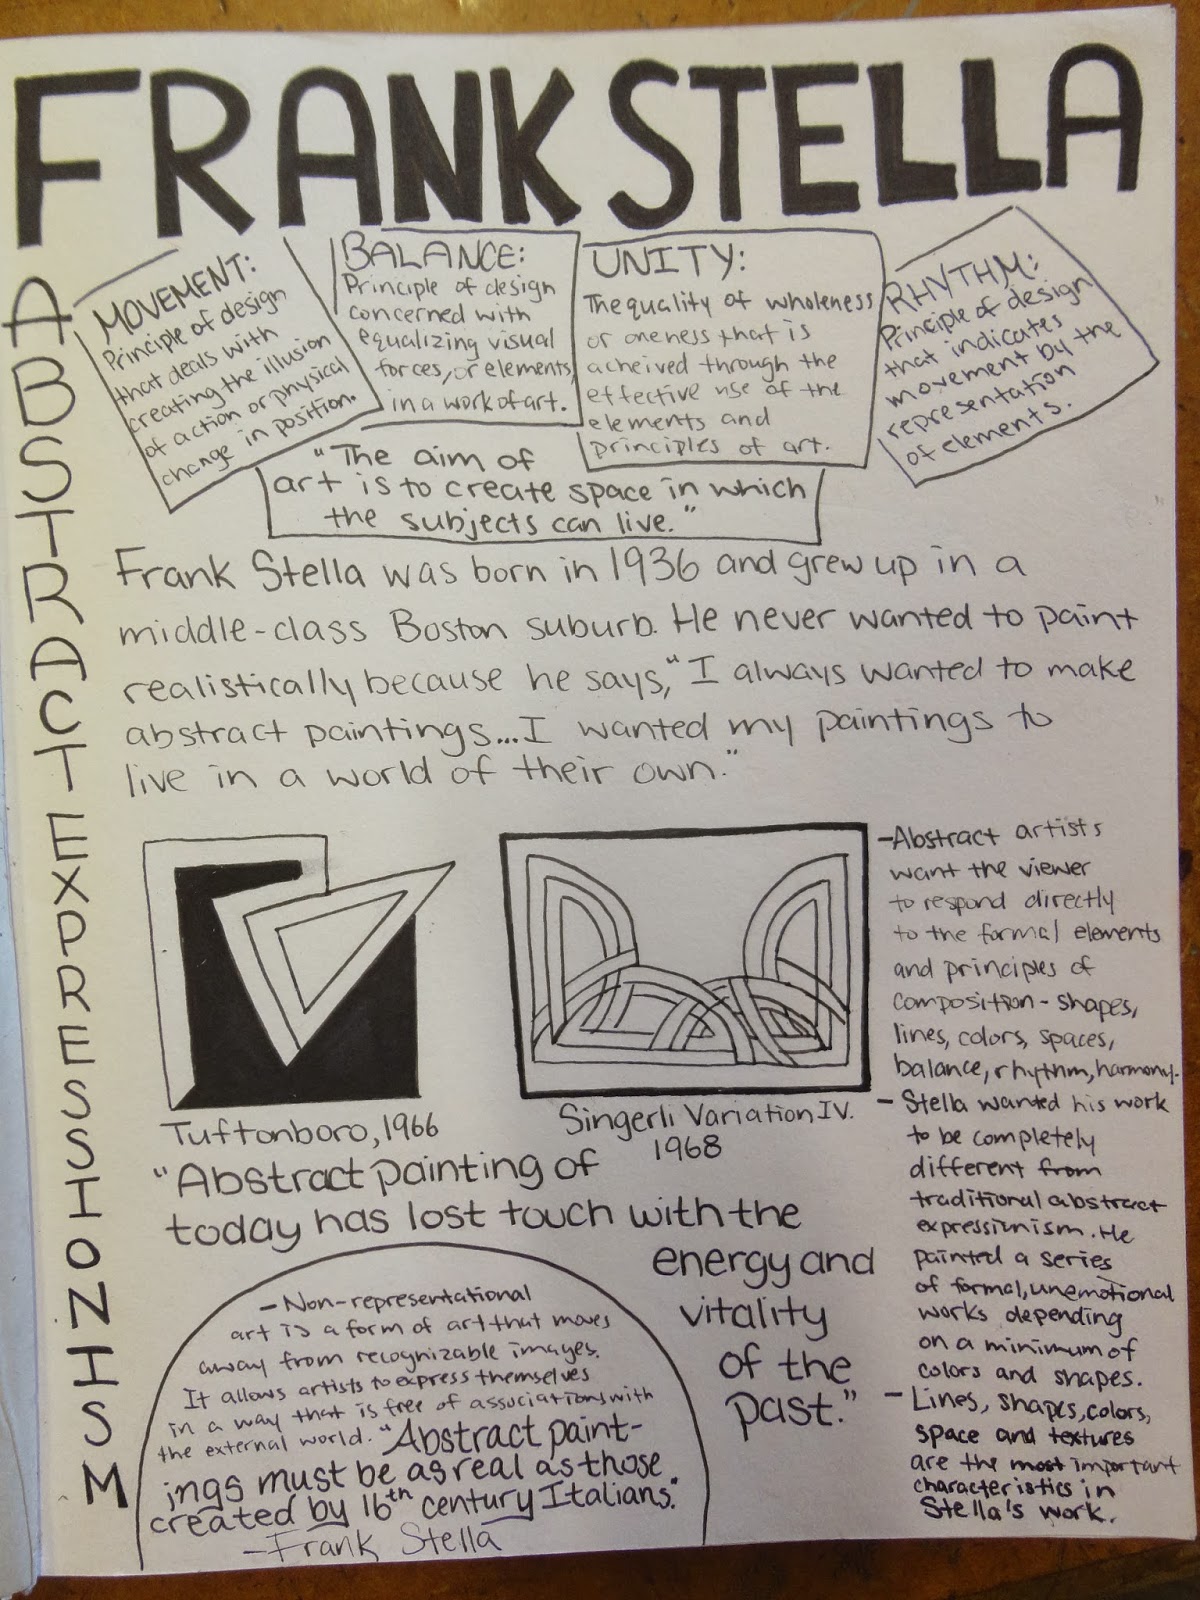 FRANK STELLA
ABSTRACT EXPRESSIONISM
MOVEMENT:
Principle of design
that deals with
creating the illusion
of action or physical
change in position.
BALANCE:
Principle of design
concerned with
equalizing visual
forces, or elements,
in a work of art.
UNITY:
The quality of wholeness
or oneness that is
acheived through the
effective use of the
elements and
principles of art.
RHYTHM:
Principle of design
that indicates
movement by the
representation
of elements.
"The aim of
art is to create space in which
the subjects can live."
Frank Stella was born in 1936 and grew up in a
middle-class Boston suburb. He never wanted to paint
realistically because he says, "I always wanted to make
abstract paintings...I wanted my paintings to
live in a world of their own."
Tuftonboro, 1966
Singerli Variation IV.
1968
-Abstract artists
want the viewer
to respond directly
to the formal elements
and principles of
composition - shapes,
lines, colors, spaces,
balance, rhythm, harmony.
- Stella wanted his work
to be completely
different from
traditional abstract
expressinism. He
painted a series
of formal, unemotional
works depending
on a minimum of
colors and shapes.
- Lines, shapes, colors,
space and textures
are the most important
characteristics in
Stella's work.
"Abstract painting of
today has lost touch with the
energy and
vitality
of the
past."
- Non-representational
art is a form of art that moves
away from recognizable images.
It allows artists to express themselves
in a way that is free of associations with
the external world. "Abstract paint-
ings must be as real as those
created by 16th century Italians."
-Frank Stella